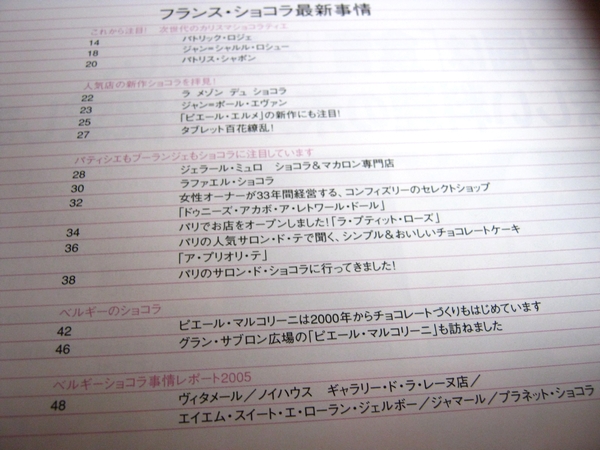 フランス・ショコラ最新事情
これから注目! 次世代のカリスマショコラティエ
14 パトリック・ロジェ
18 ジャン=シャルル・ロシュー
20 パトリス・シャポン
人気店の新作ショコラを拝見!
22 ラ メゾン デュ ショコラ
23 ジャン=ポール・エヴァン
25 「ピエール・エルメ」の新作にも注目!
27 タブレット百花繚乱!
パティシエもブーランジェもショコラに注目しています
28 ジェラール・ミュロ ショコラ&マカロン専門店
30 ラファエル・ショコラ
32 女性オーナーが33年間経営する、コンフィズリーのセレクトショップ
「ドゥニーズ・アカボ・ア・レトワール・ドール」
34 パリでお店をオープンしました!「ラ・プティット・ローズ」
36 パリの人気サロン・ド・テで聞く、シンプル&おいしいチョコレートケーキ
「ア・プリオリ・テ」
38 パリのサロン・ド・ショコラに行ってきました!
ベルギーのショコラ
42 ピエール・マルコリーニは2000年からチョコレートづくりもはじめています
46 グラン・サブロン広場の「ピエール・マルコリーニ」も訪ねました
ベルギーショコラ事情レポート2005
48 ヴィタメール/ノイハウス ギャラリー・ド・ラ・レーヌ店/
エイエム・スイート・エ・ローラン・ジェルボー/ジャマール/プラネット・ショコラ